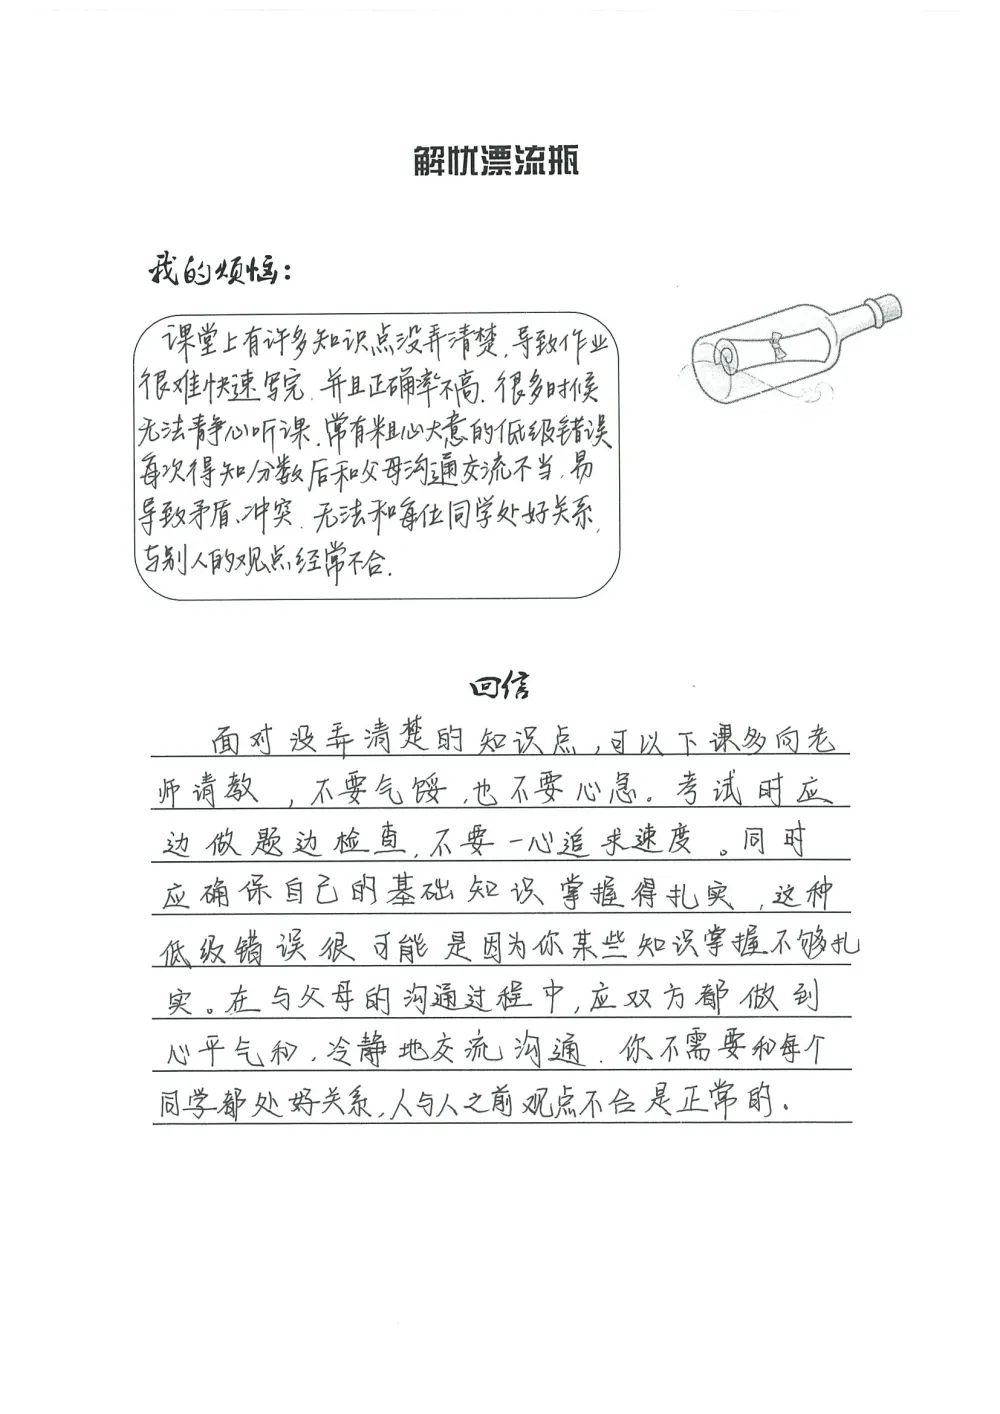 解忧漂流瓶
我的烦恼：
课堂上有许多知识点没弄清楚，导致作业
很难快速写完，并且正确率不高，很多时候
无法静心听课，常有粗心大意的低级错误
每次得知分数后和父母沟通交流不当，易
导致矛盾、冲突，无法和每位同学处好关系，
与别人的观点经常不合．
回信
面对没弄清楚的知识点，可以下课多向老
师请教，不要气馁，也不要心急。考试时应
边做题边检查，不要一心追求速度。同时
应确保自己的基础知识掌握得扎实，这种
低级错误很可能是因为你某些知识掌握不够扎
实。在与父母的沟通过程中，应双方都做到
心平气和，冷静地交流沟通．你不需要和每个
同学都处好关系，人与人之前观点不合是正常的．